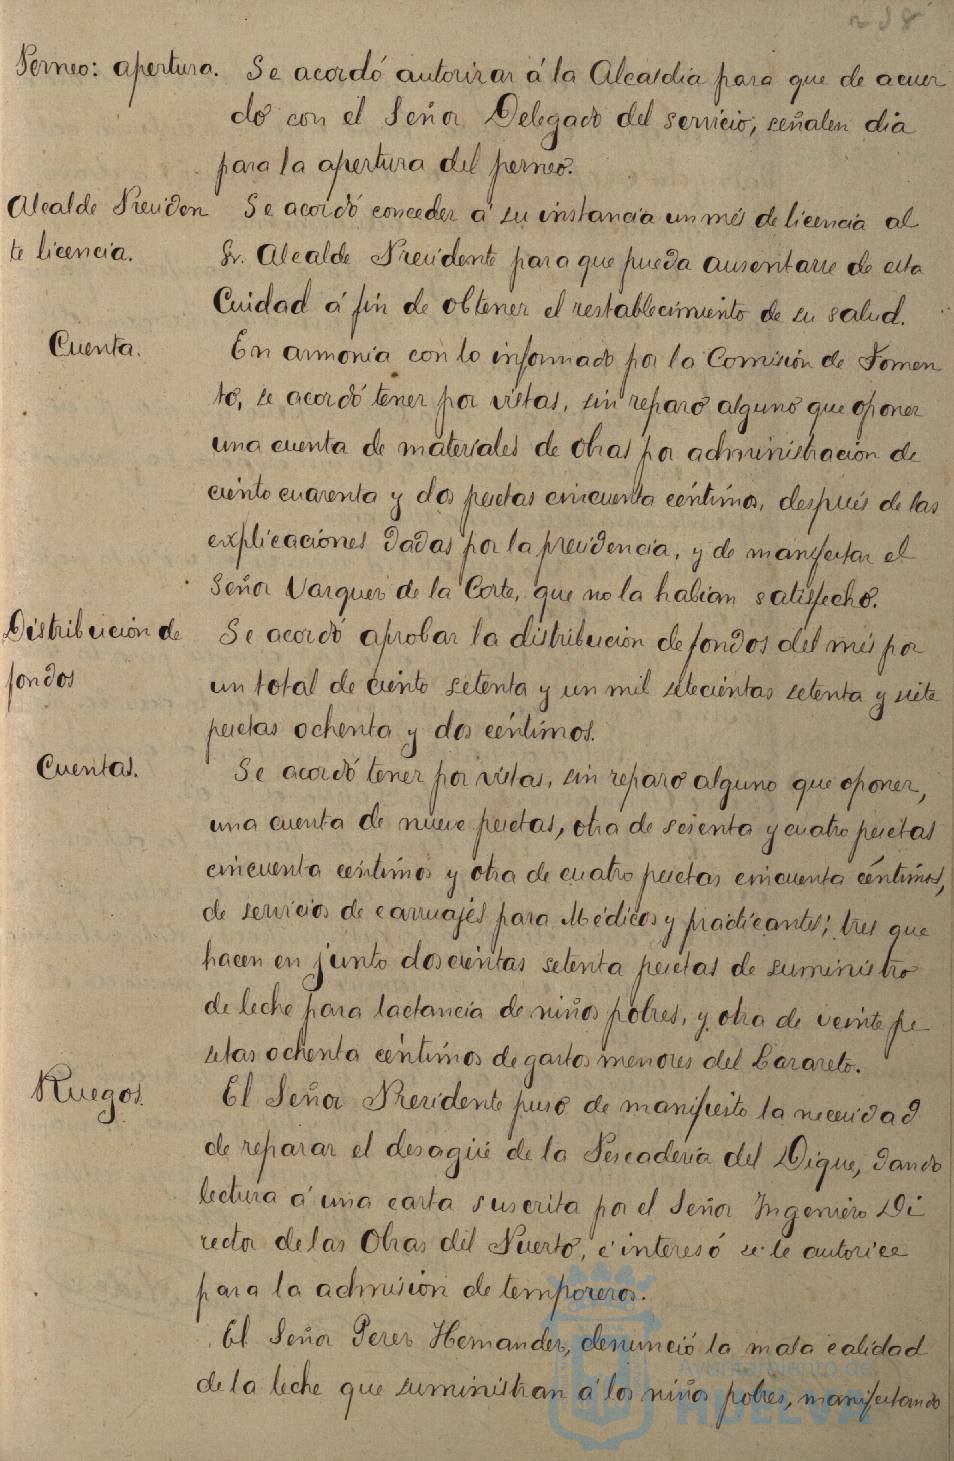 238
Perneo: apertura. Se acordó autorizar á la Alcaldia para que de acuer
do con el Señor Delegado del servicio, señalen dia
para la apertura del perneo.
Alcalde Presiden Se acordó conceder á su instancia un més de licencia al
te licencia. Sr. Alcalde Presidente para que pueda ausentarse de esta
Cuidad á fin de obtener el restablecimiento de su salud.
Cuenta. En armonía con lo informado por la Comisión de Fomen
to, se acordó tener por vistas, sin reparo alguno que oponer
una cuenta de materiales de obras por administración de
ciento cuarenta y dos pesetas cincuenta céntimos, después de las
explicaciones dadas por la presidencia, y de manifestar el
Señor Vazquez de la Corte, que no la habian satisfecho.
Distribución de Se acordó aprobar la distribución de fondos del més por
fondos un total de ciento setenta y un mil setecientas setenta y siete
pesetas ochenta y dos céntimos.
Cuentas. Se acordó tener por vistas, sin reparo alguno que oponer,
una cuenta de nueve pesetas, otra de sesenta y cuatro pesetas
cincuenta céntimos y otra de cuatro pesetas cincuenta céntimos,
de servicios de carruajes para Médicos y practicantes; tres que
hacen en junto doscientas setenta pesetas de suministro
de leche para lactancia de niños pobres, y otra de veinte pe
setas ochenta céntimos de gastos menores del Lazareto.
Ruegos. El Señor Presidente puso de manifiesto la necesidad
de reparar el desagüe de la Pescadería del Dique, dando
lectura á una carta suscrita por el Señor Ingeniero Di
rector de las Obras del Puerto, é interesó se le autorice
para la admisión de temporeros.
El Señor Perez Hernandez, denunció la mala calidad
de la leche que suministran á los niños pobres, manifestando
Ayuntamiento de
HUELVA